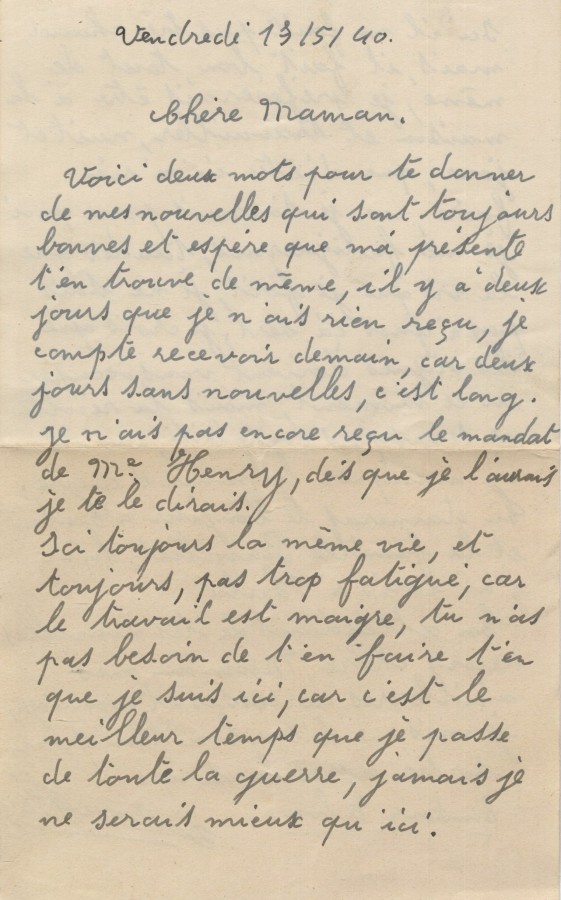 Vendredi 13/5/40.
Chère Maman.
Voici deux mots pour te donner
de mes nouvelles qui sont toujours
bonnes et espère que ma présente
t'en trouve de même, il y a deux
jours que je n'ais rien reçu, je
compte recevoir demain, car deux
jours sans nouvelles, c'est long.
je n'ais pas encore reçu le mandat
de Mr. Henry, dès que je l'aurais
je te le dirais.
Ici toujours la même vie, et
toujours, pas trop fatigué, car
le travail est maigre, tu n'as
pas besoin de t'en faire t'en
que je suis ici, car c'est le
meilleur temps que je passe
de toute la guerre, jamais je
ne serais mieux qu'ici.